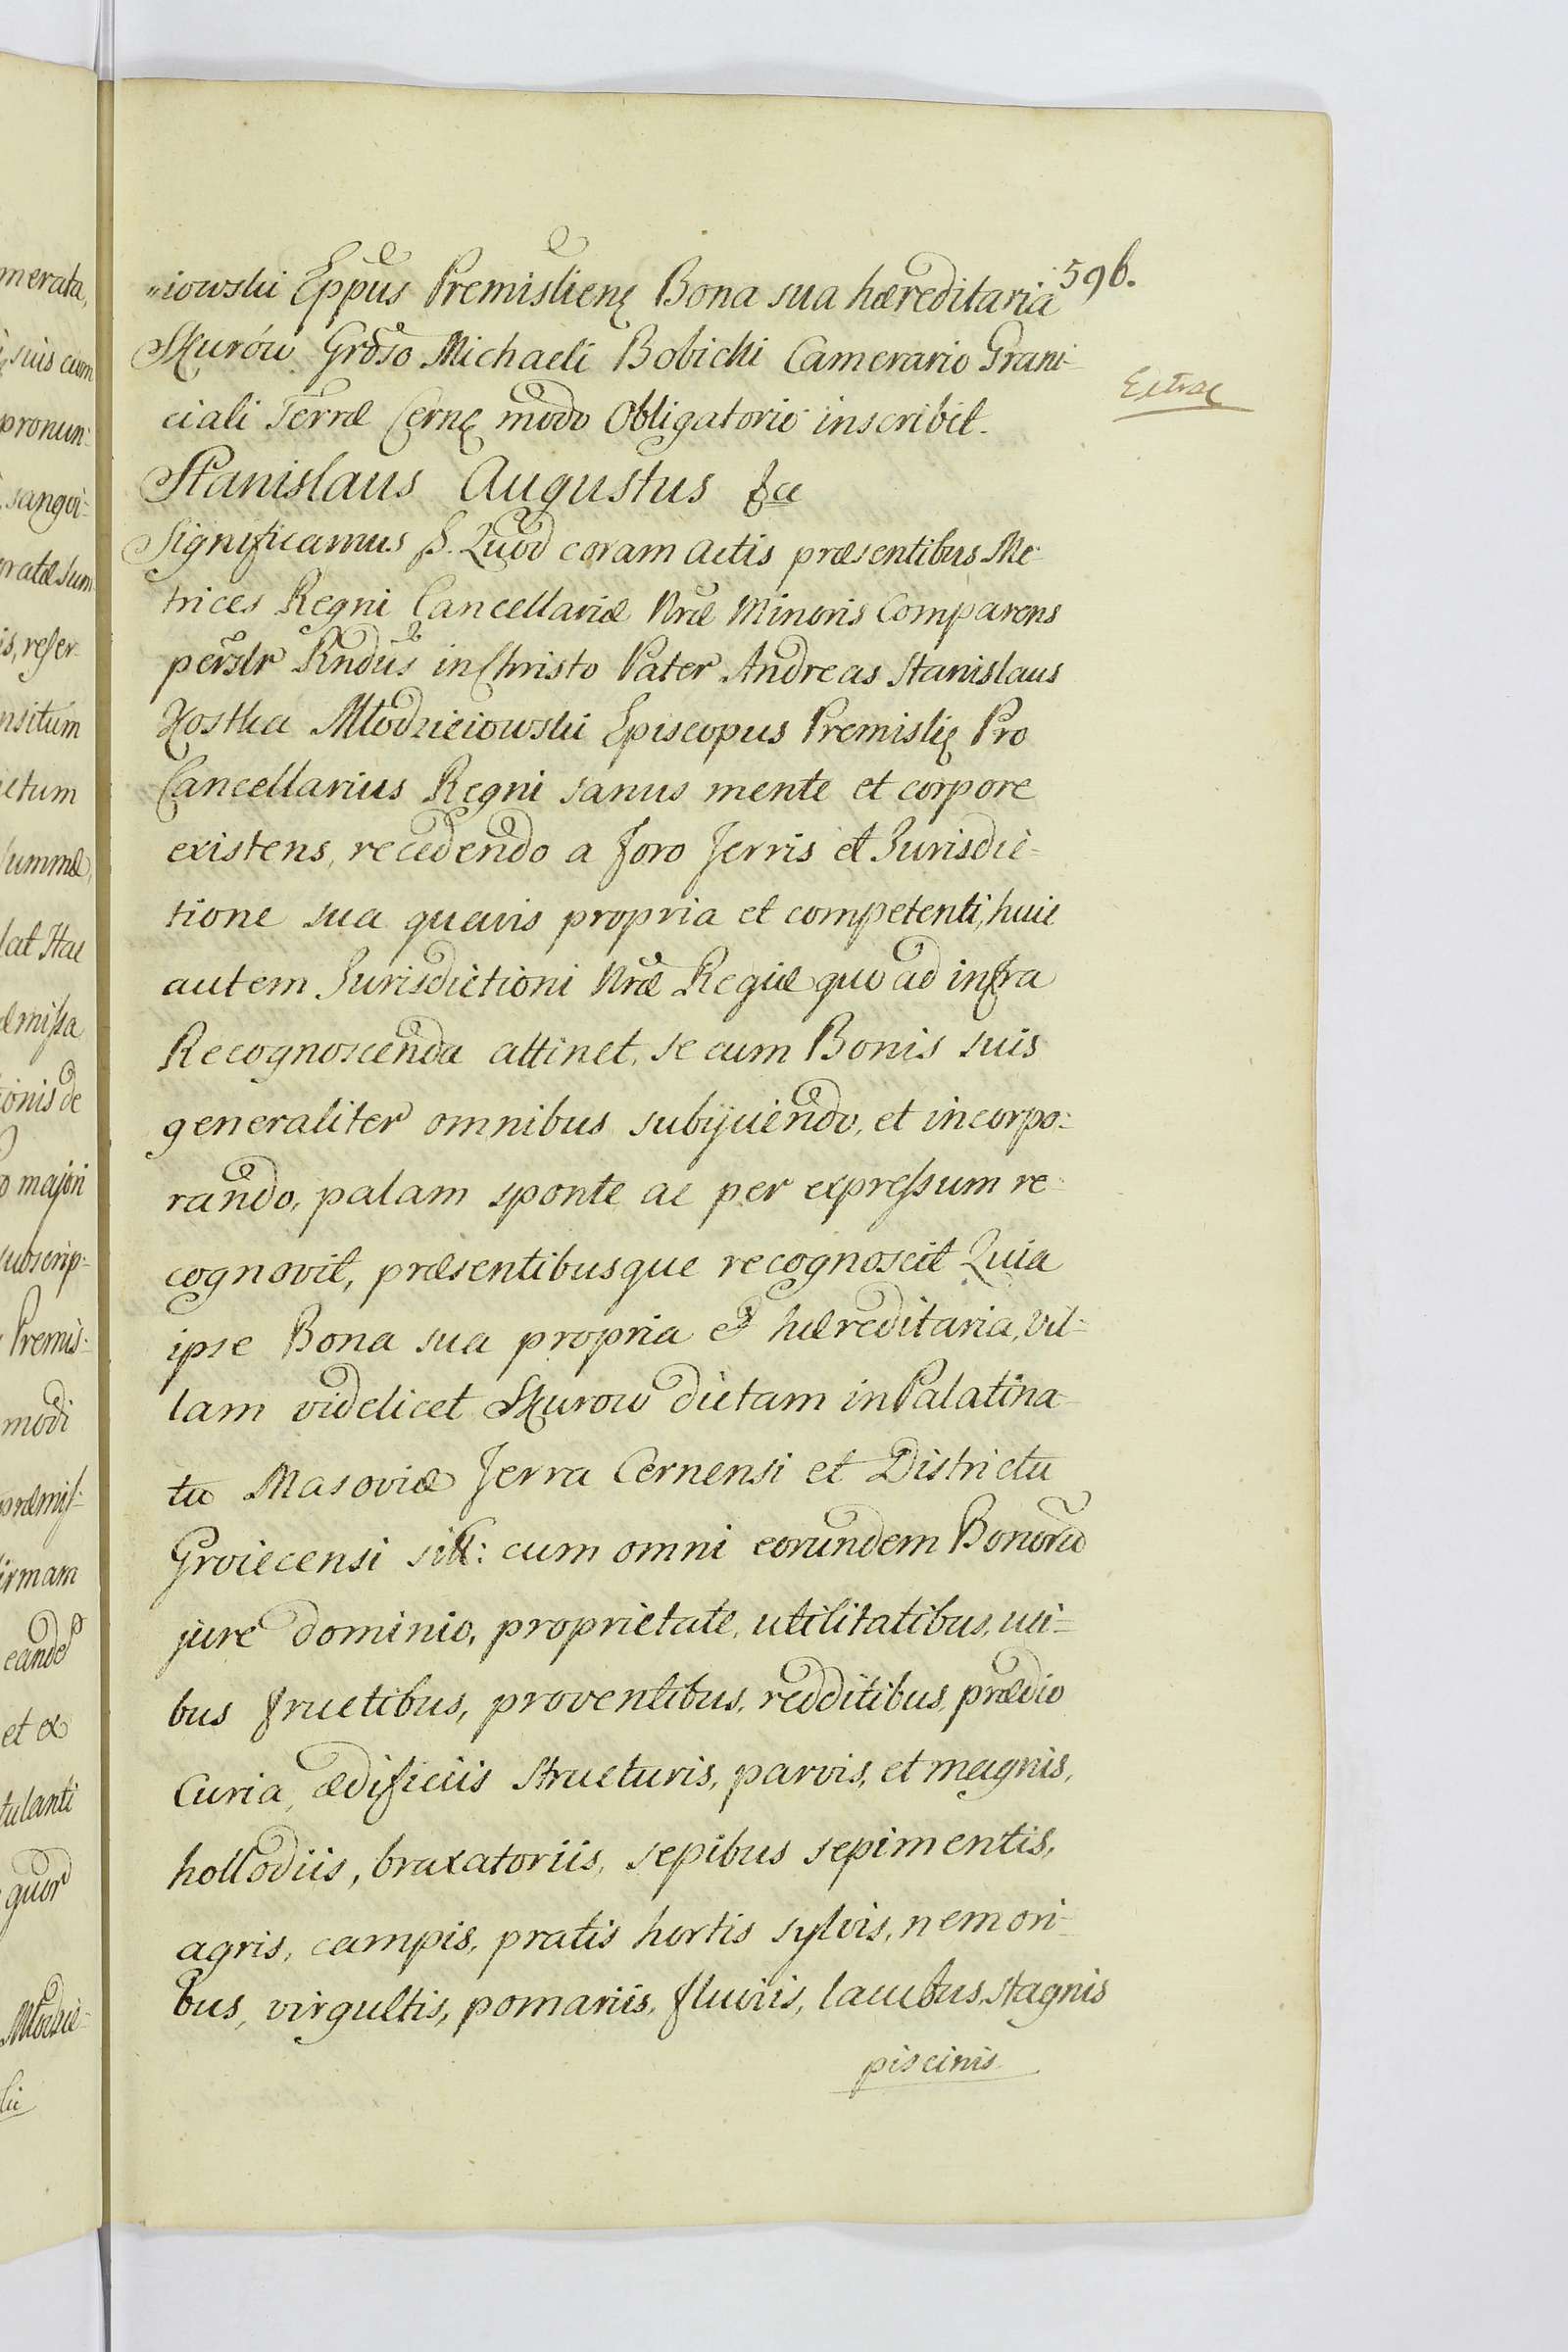 596.
„iowski Eppus Premisliens Bona sua hæreditaria
Skurów Groso Michaeli Bobicki Camerario Grani-
ciali Terræ Cerns modo Obligatorio inscribit.
Extrac
Stanislaus Augustus &ca
Significamus &. Quod coram Actis præsentibus Me-
trices Regni Cancellariæ Nræ Minoris Comparens
perslr Rndus in Christo Pater Andreas Stanislaus
Kostka Młodzieiowski Episcopus Premislis Pro
Cancellarius Regni sanus mente et corpore
existens, recedendo a foro Terris et Jurisdic-
tione sua quavis propria et competenti, huic
autem Jurisdictioni Nræ Regiæ quo ad infra
Recognoscenda attinet, se cum Bonis suis
generaliter omnibus subijciendo, et incorpo:
rando, palam sponte ac per expressum re-
cognovit, præsentibusque recognoscit Quia
ipse Bona sua propria et hæreditaria, Vil-
lam videlicet Skurow dictam in Palatina-
tu Masoviæ Terra Cernensi et Districtu
Groiecensi sitt: cum omni eorundem Bonoru
jure dominio, proprietate, utilitatibus, usi-
bus fructibus, proventibus, redditibus, prædio
Curia, ædificiis structuris, parvis, et magnis,
hollodiis, braxatoriis, sepibus sepimentis,
agris, campis, pratis hortis sylvis, nemori-
bus, virgultis, pomariis, fluviis, lacubus, stagnis
piscinis
merata,
suis cum
pronun:
sangvi-
ratæ sum
is, reser-
nsitum
ctum
summæ,
lat Hac
æmissa
ionis de
o majori
subscrip:
Premis:
modi
præmis:
irmam
eande
et ex
tulanti
quor
Młodzie-